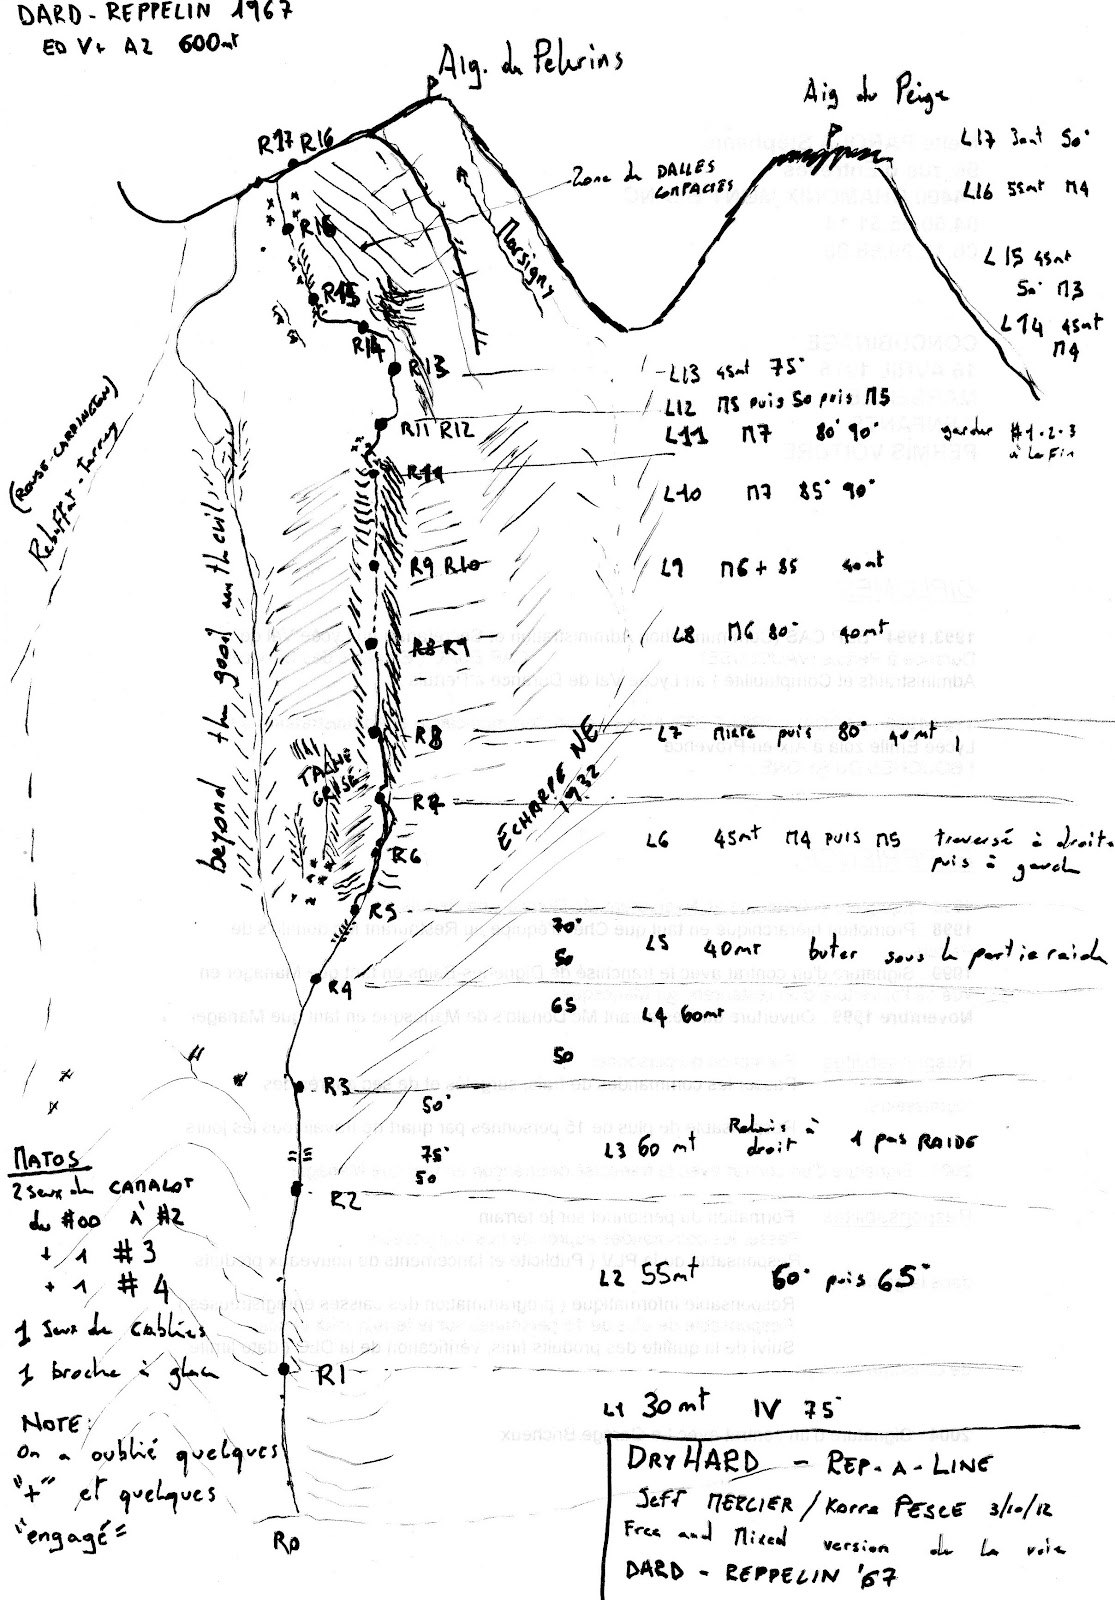 DARD - REPPELIN 1967
ED V+ A2 600mt
Alg. du Pelerins
Aig du Peigne
R17 R16
L17 30mt 50°
Zone de DALLES
COMPACTES
L16 55mt M4
Marsigny
R16
L15 45mt
50° M3
R15
L14 45mt
M4
R14
R13
L13 45mt 75°
L12 M5 puis 50 puis M5
R11 R12
L11 M7 80° 90° garder #1-2-3
à la Fin
R11
L10 M7 85° 90°
(ROUSE-CARRINGTON)
Rebuffat - Terray
beyond the good and evil
R9 R10
L9 M6+ 85 40mt
R8 R9
L8 M6 80° 40mt
R8
L7 Mixte puis 80° 40mt
TACHE
GRISE
ECHARPE NE
1932
R7
L6 45mt M4 puis M5 traversé à droite
puis à gauche
R6
R5
70°
50
L5 40mt buter sous la partie raide
R4
65
L4 60mt
50
R3
50°
75°
50
L3 60mt Relais à
droit 1 pas RAIDE
R2
MATOS
2 seux de CAMALOT
du #00 A' #2
+ 1 #3
+ 1 #4
1 seux de cablées
1 broche à glace
L2 55mt 60° puis 65°
R1
L1 30mt IV 75°
NOTE:
On a oublié quelques
"+" et quelques
"engagé"
R0
DRYHARD - REP-A-LINE
Jeff MERCIER / Korra PESCE 3/10/12
Free and Mixed version de la voie
DARD - REPPELIN '67